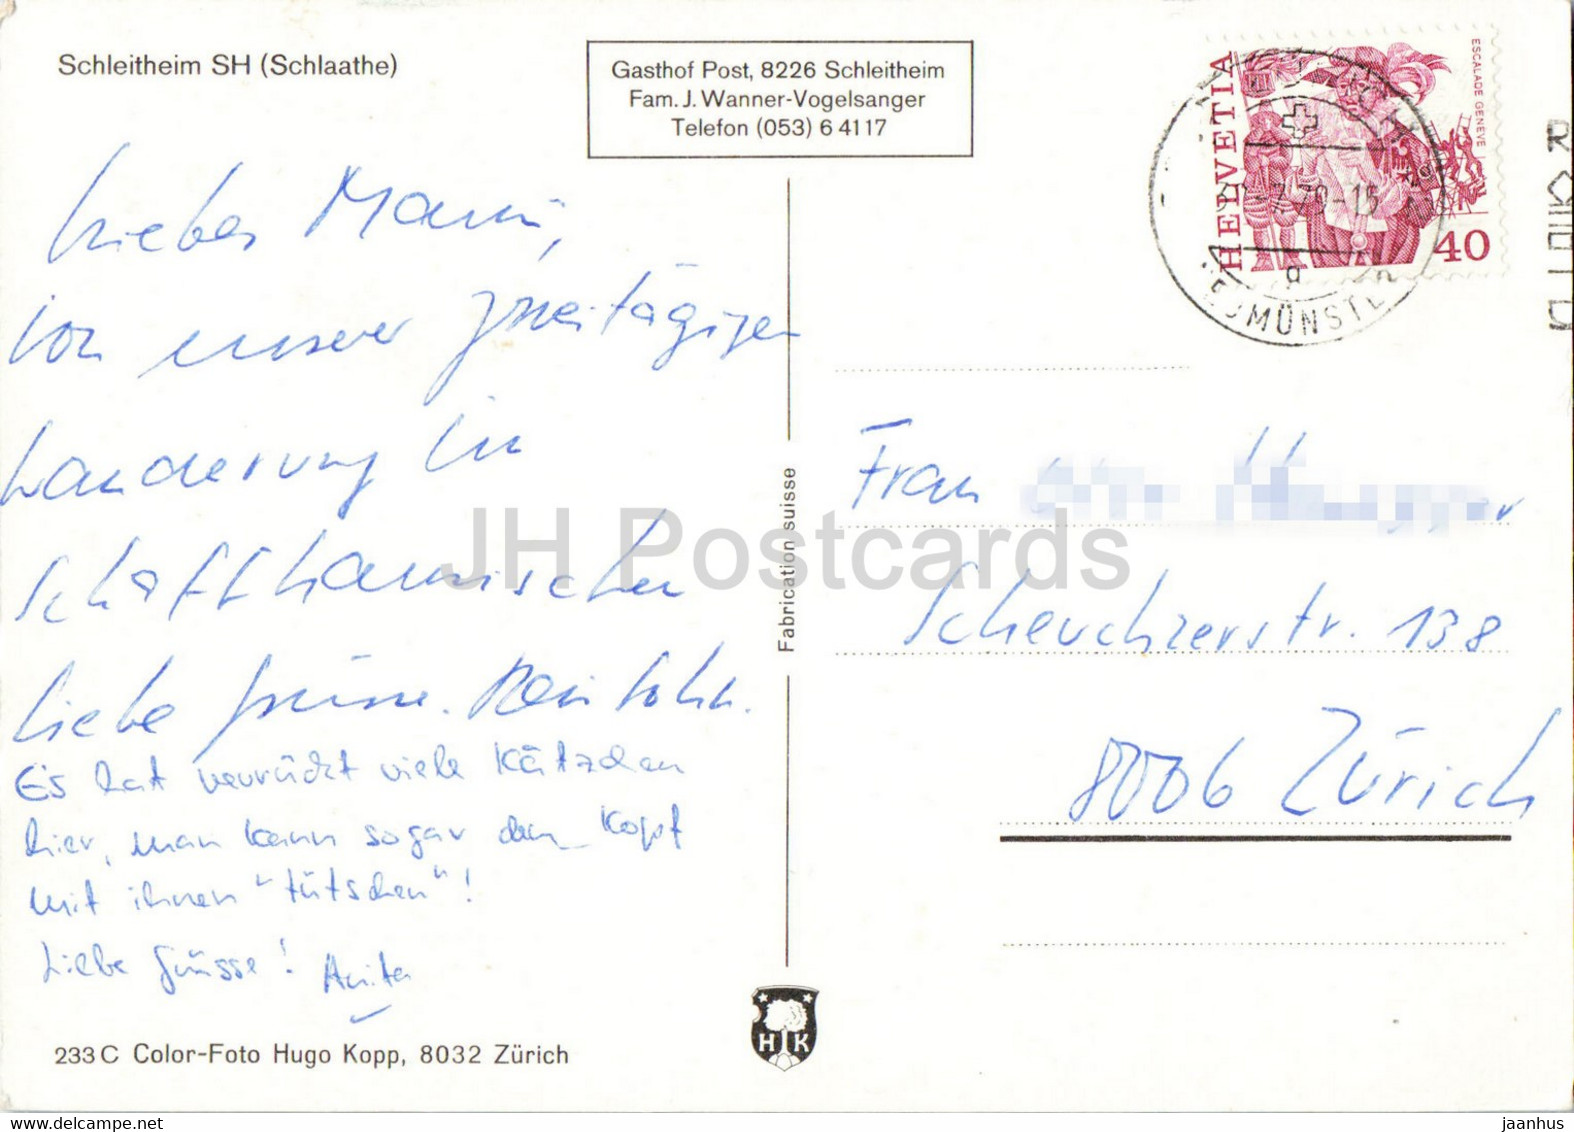 Schleitheim SH (Schlaathe)
Gasthof Post, 8226 Schleitheim
Fam. J. Wanner-Vogelsanger
Telefon (053) 6 41 17
HELVETIA
ESCALADE GENÈVE
40
Liebes Mami,
von unserer zweitägigen
Wanderung im
Schaffhausischen
liebe Grüsse.
Es hat verrückt viele Kätzchen
hier, man kann sogar den Kopf
mit ihnen "tütschen"!
Liebe Grüsse! Anita
Fabrication suisse
Frau
Scheuchzerstr. 138
8006 Zürich
JH Postcards
H K
233 C Color-Foto Hugo Kopp, 8032 Zürich
www.delcampe.net
jaanhus